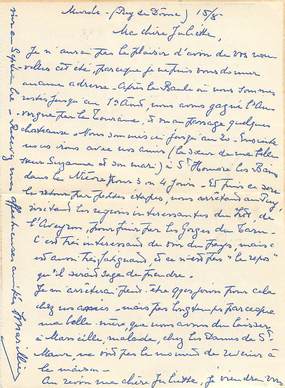 Murols - (Puy de Dôme) 15/8
Ma chère Juliette,
Je n'aurai pas le plaisir d'avoir de vos nou-
velles cet été, parceque je ne puis vous donner
aucune adresse - Après la Baule où nous sommes
restés jusqu'au 1er Août, nous avons gagné l'Au-
vergne par la Touraine, et au passage quelques
chateaux - Nous sommes ici jusqu'au 20 - Ensuite
nous irons avec nos amis (la sœur de ma belle
sœur Suzanne et son mari) à St Honoré les Bains
dans la Nièvre pour 3 ou 4 jours - Et puis ce sera
le retour par petites étapes, nous arrêtant au Puy,
visitant les régions interessantes du Lot, de
l'Aveyron, pour finir par les Gorges du Tarn -
C'est très interessant de voir du Pays, mais c'
est aussi très fatiguant, et ce n'est pas "le repos"
qu'il serait sage de prendre.
Je m'arrêterai peut-être qques jours chez
mes - mais pas longtemps parceque
ma belle-mère que nous avons du laisser
à Marseille malade, chez les Dames de St
Maur, ne doit pas le moment de revenir à
la maison -
Au revoir ma chère Juliette, je viendrai vous
voir en Septembre - Recevez mes affectueuses amitiés